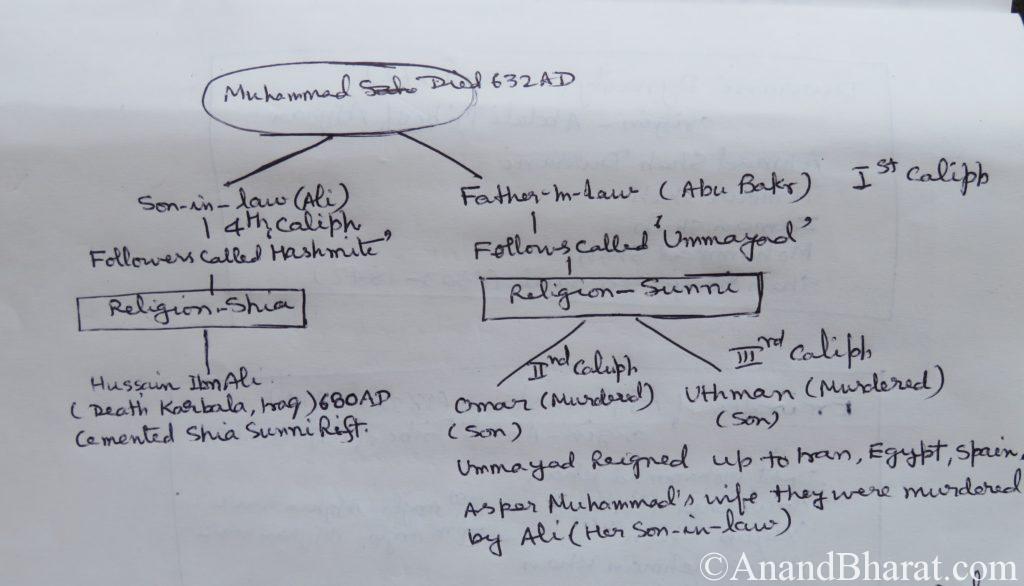 Muhammad Died 632AD
Son-in-law (Ali)
4th Caliph
Followers called 'Hashmite'
Religion-Shia
Hussain Ibn Ali
(Death Karbala, Iraq) 680AD
Cemented Shia Sunni Rift.
Father-In-Law (Abu Bakr) Ist Caliph
Follows called 'Ummayad'
Religion-Sunni
IInd Caliph
Omar (Murdered)
(Son)
IIIrd Caliph
Uthman (Murdered)
(Son)
Ummayad Reigned up to Iran, Egypt, Spain,
As per Muhammad's wife they were murdered
by Ali (Her Son-in-law)
©AnandBharat.com